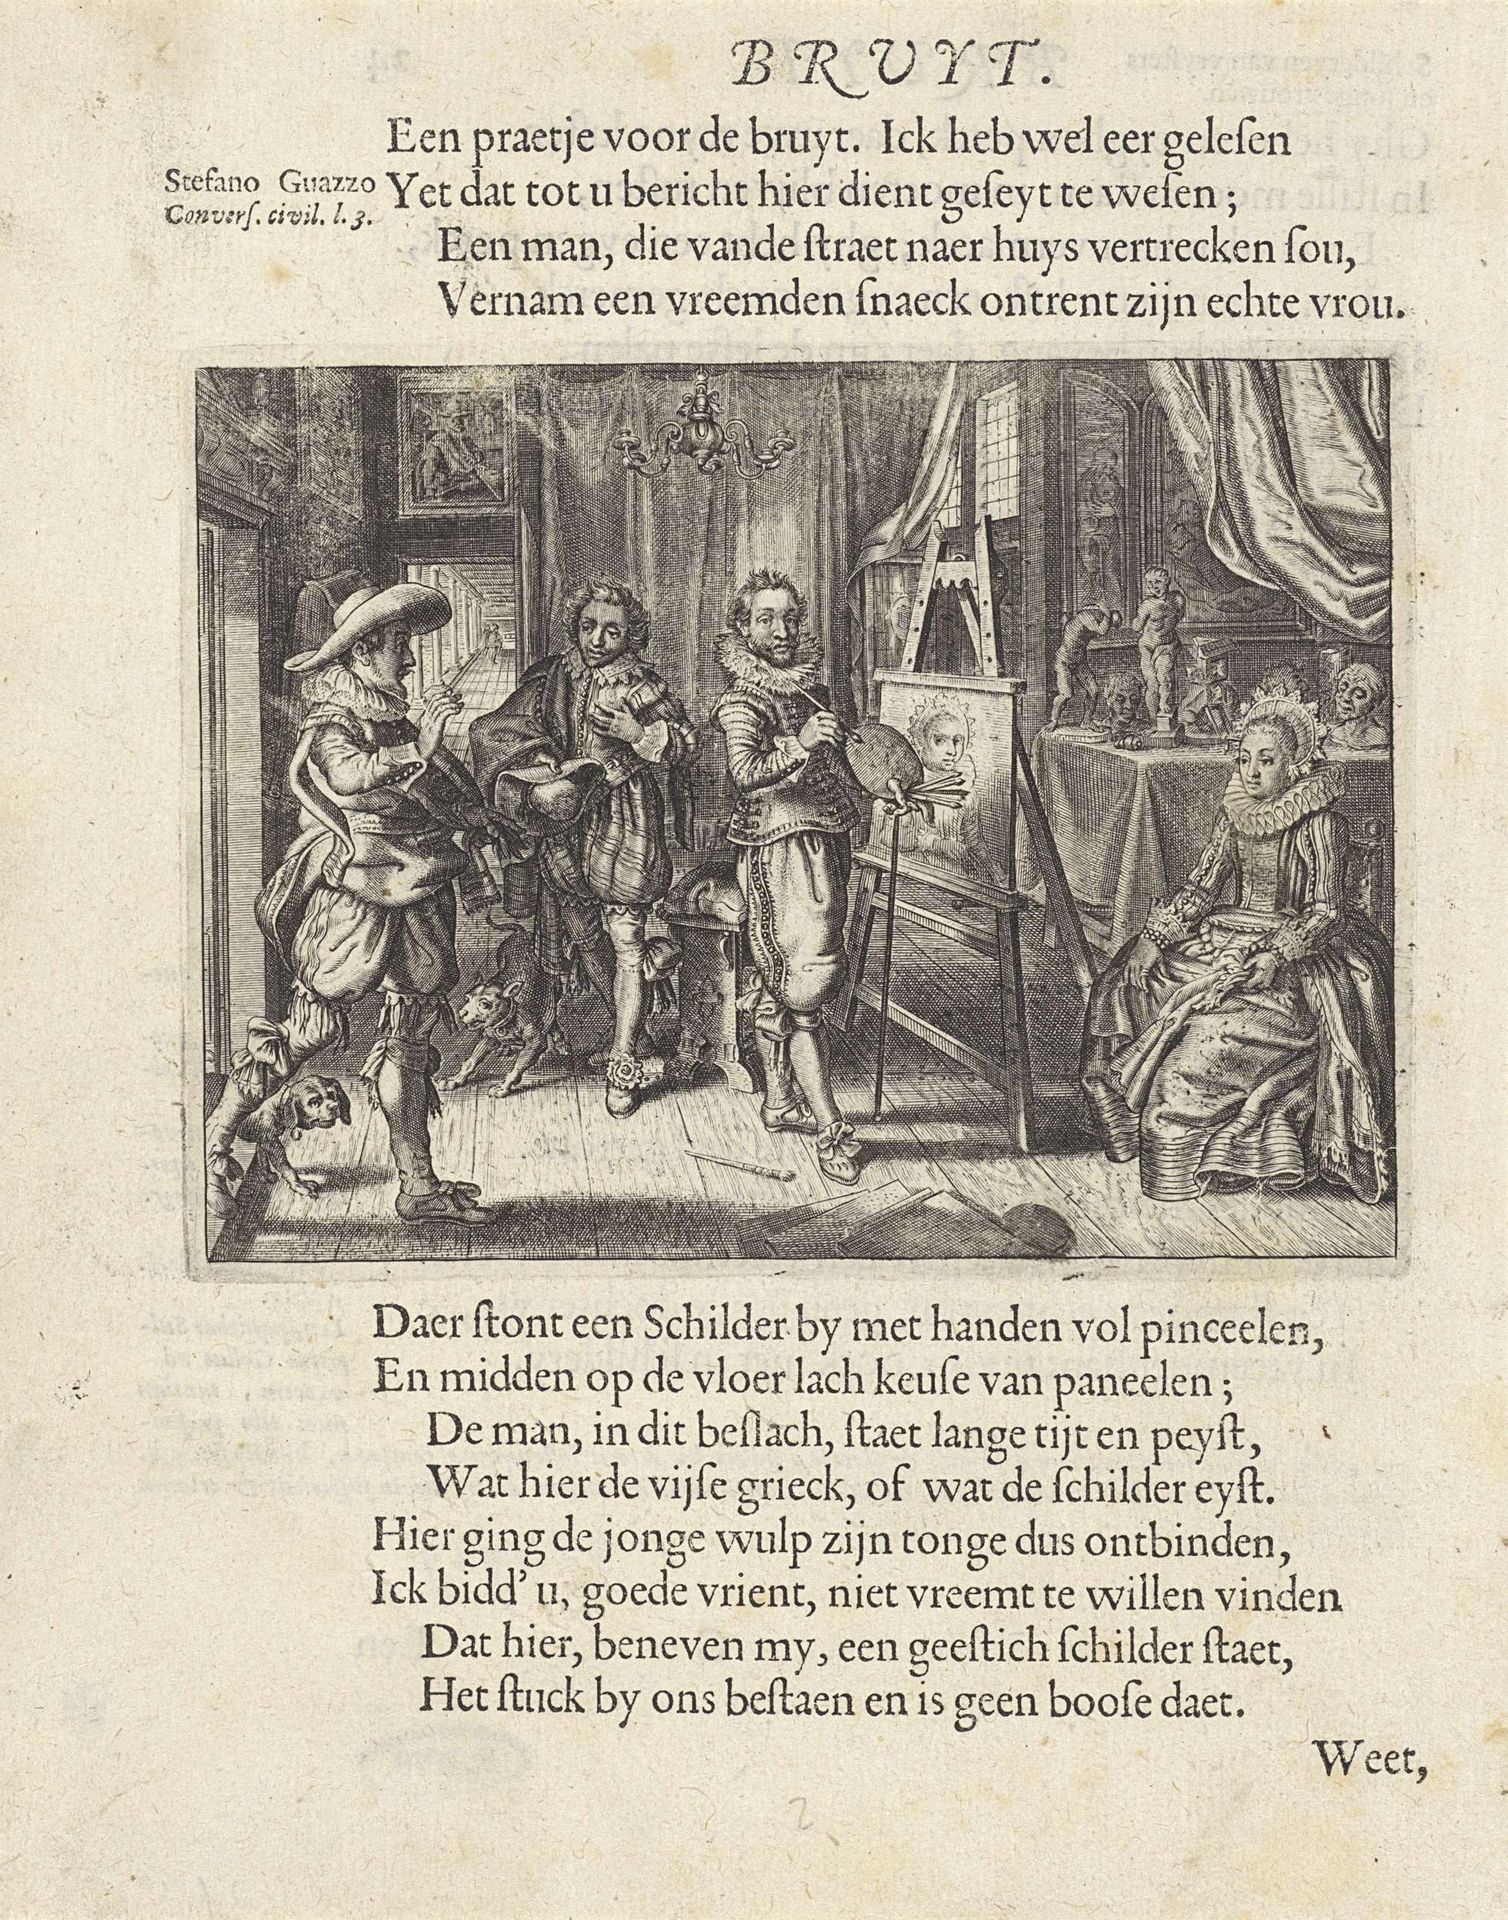 BRUYT.
Een praetje voor de bruyt. Ick heb wel eer geleſen
Stefano Guazzo
Converſ. civil. l. 3.
Yet dat tot u bericht hier dient geſeyt te weſen;
Een man, die vande ſtraet naer huys vertrecken ſou,
Vernam een vreemden ſnaeck ontrent zijn echte vrou.
Daer ſtont een Schilder by met handen vol pinceelen,
En midden op de vloer lach keuſe van paneelen;
De man, in dit beſlach, ſtaet lange tijt en peyſt,
Wat hier de vijſe grieck, of wat de ſchilder eyſt.
Hier ging de jonge wulp zijn tonge dus ontbinden,
Ick bidd' u, goede vrient, niet vreemt te willen vinden
Dat hier, beneven my, een geeſtich ſchilder ſtaet,
Het ſtuck by ons beſtaen en is geen booſe daet.
Weet,
2